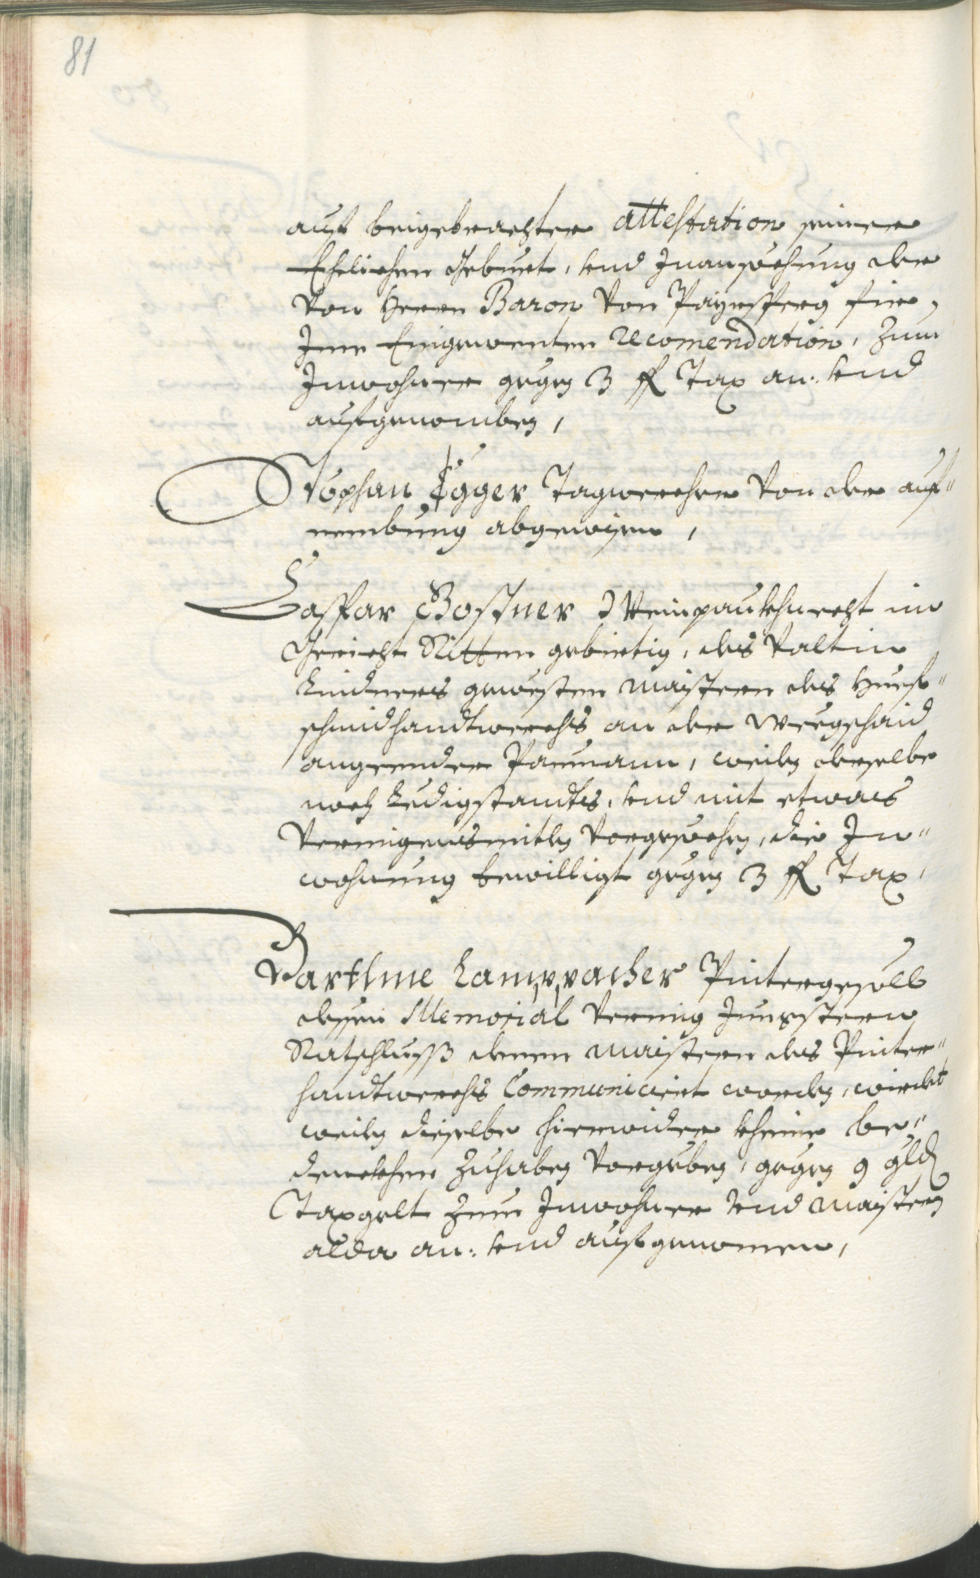 81
auf beigebrachter attestation seiner
Ehelichen Geburt, vnd in ansechung der
von Herrn Baron von Payrsperg für
Ine Eingewenten recomendation, zum
Inwohner gegen 3 fl Tax an: vnd
aufgenomben,
Stephan Egger Tagwercher von der auf"
nembung abgewisen,
Caspar Bostner Weinpaukhnecht im
Gericht Ritten gebirtig, des Valtin
Lindners gewesten maistern des Huef"
schmidhandtwerchs an der Weegschaid
angeender Paumann, weilen derselbe
noch Ledigstandts, vnd mit etwas
Vermigensmitln vorgesechen, die In"
wohnung bewilligt gegen 3 fl Tax,
Bartlme Lampracher Pintergesöll
dessen Memorial vermig Jungstern
Ratschluss denen maistern des Pinter"
handtwerchs Communiciert worden, wirdet
weilen dieselbe hierwider kheine be"
denckhen zuhaben vorgeben, gegen 9 gld
Taxgelt zum Inwohner vnd maistern
alda an: vnd aufgenomen,